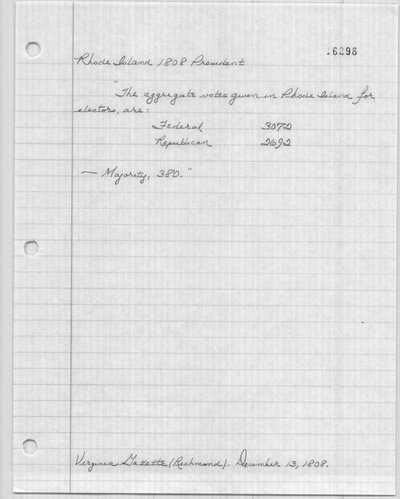 16298
Rhode Island 1808 President
"The aggregate votes given in Rhode Island for
electors, are:
Federal 3072
Republican 2692
— Majority, 380."
Virginia Gazette (Richmond). December 13, 1808.